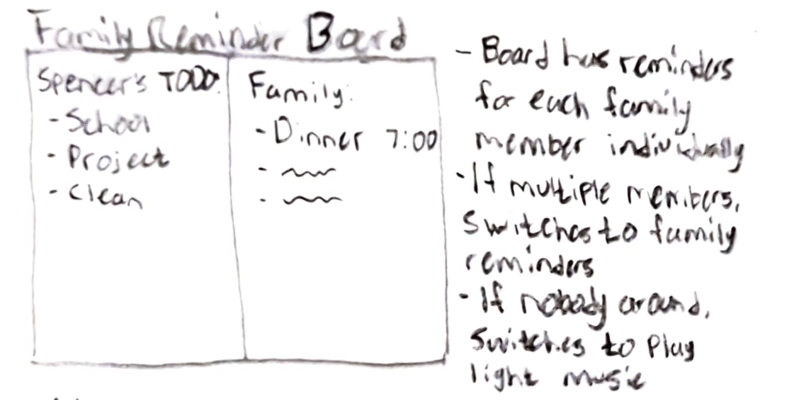 Family Reminder Board
Spencer's TODO:
- School
- Project
- Clean
Family:
- Dinner 7:00
-
-
- Board has reminders
for each family
member individually
- If multiple members,
switches to family
reminders
- If nobody around,
switches to play
light music